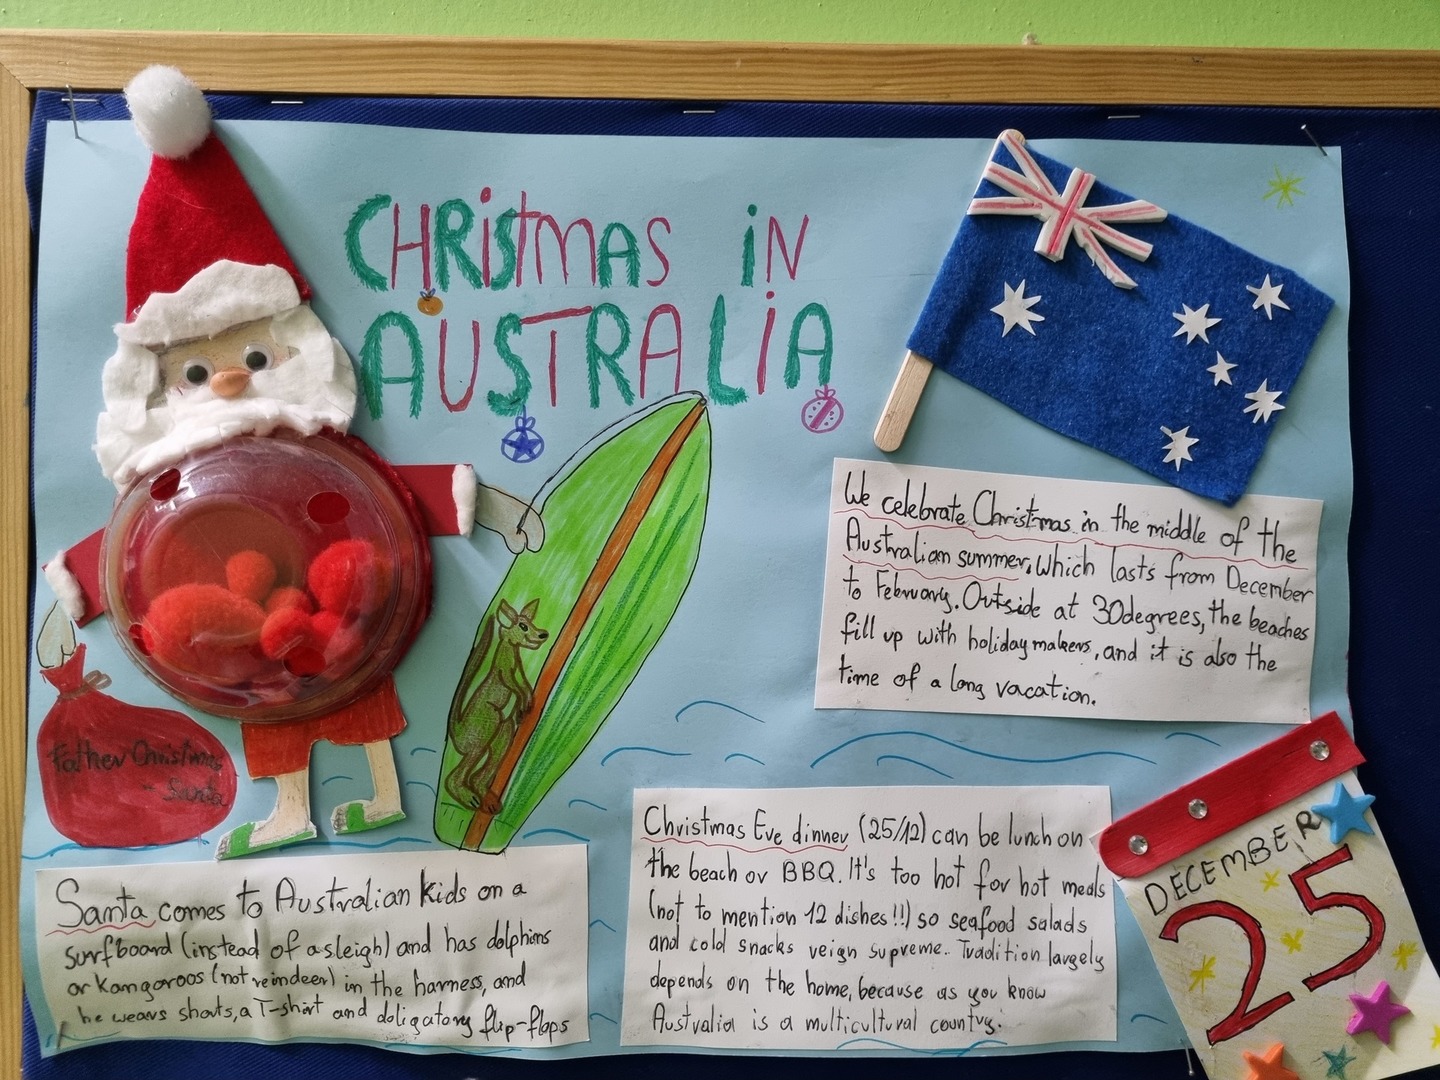 CHRiSTMAS iN
AUSTRALiA
We celebrate Christmas in the middle of the
Australian summer, which lasts from December
to February. Outside at 30degrees, the beaches
fill up with holiday makers, and it is also the
time of a long vacation.
Father Christmas
- Santa
Christmas Eve dinner (25/12) can be lunch on
the beach or BBQ. It's too hot for hot meals
(not to mention 12 dishes!!) so seafood salads
and cold snacks veign supreme. Tradition largely
depends on the home, because as you know
Australia is a multicultural country.
DECEMBER
25
Santa comes to Australian kids on a
surfboard (instead of a sleigh) and has dolphins
or kangaroos (not reindeer) in the harness, and
he wears shorts, a T-shirt and doligatory flip-flops